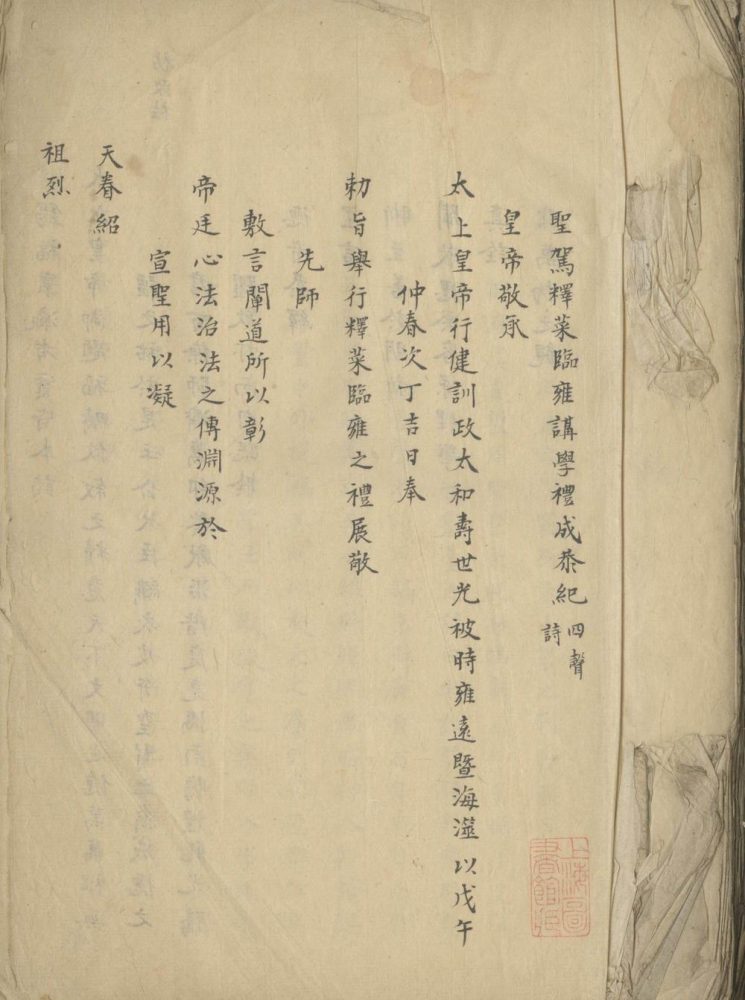 聖駕釋菜臨雍講學禮成恭紀 四聲詩
皇帝敬承
太上皇帝行健訓政太和壽世光被時雍遠暨海澨以戊午
仲春次丁吉日奉
勅旨舉行釋菜臨雍之禮展敬
先師
敷言闡道所以彰
帝廷心法治法之傳淵源於
宣聖用以凝
天眷紹
祖烈
上海圖書館藏